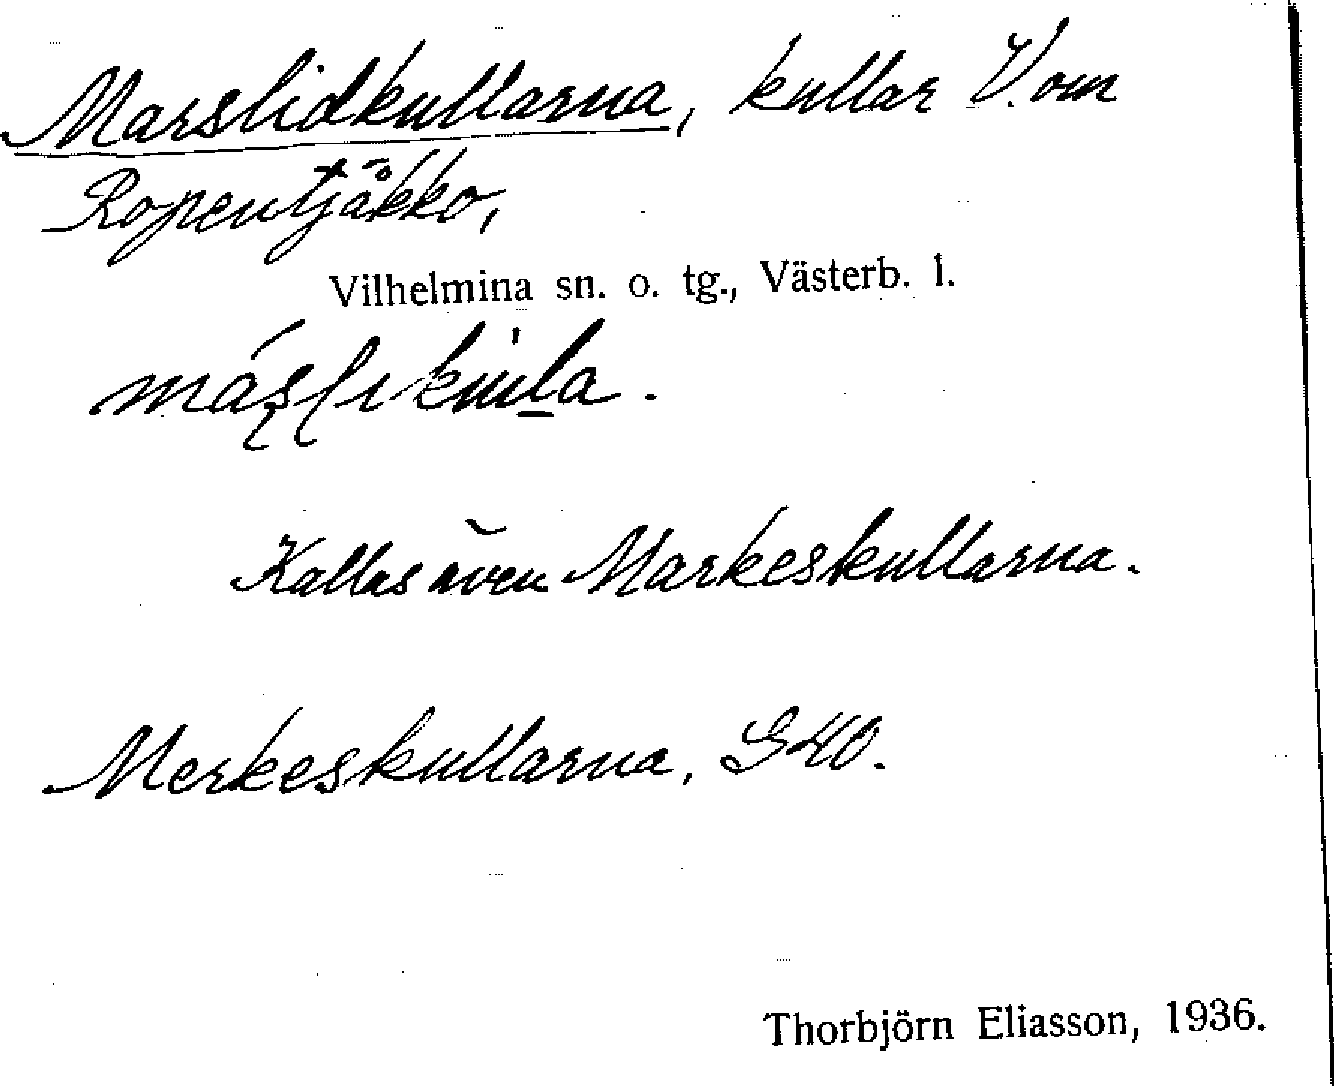 Marslidkullarna, kullar V. om
Ropentjåkko,
Vilhelmina sn. o. tg., Västerb. l.
Kallas även Markeskullarna.
Merkeskullarna, G40.
Thorbjörn Eliasson, 1936.